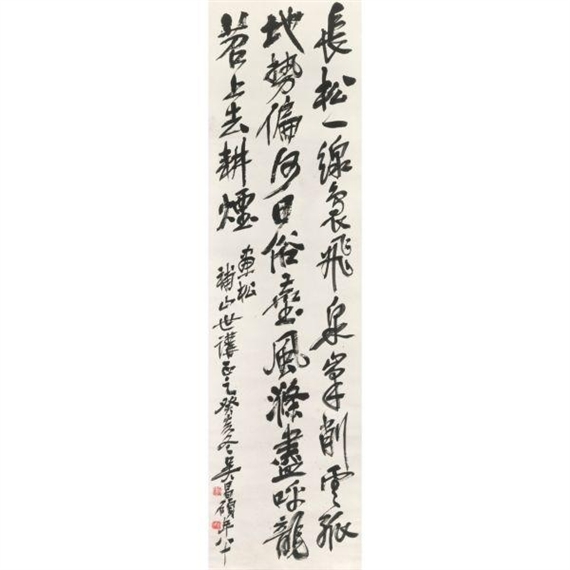 長松一線裊飛泉峯削雲孤
地勢偏何日俗塵風滌盡呼龍
苕上去耕煙
畫松
補山世講正之癸亥冬吳昌碩年八十